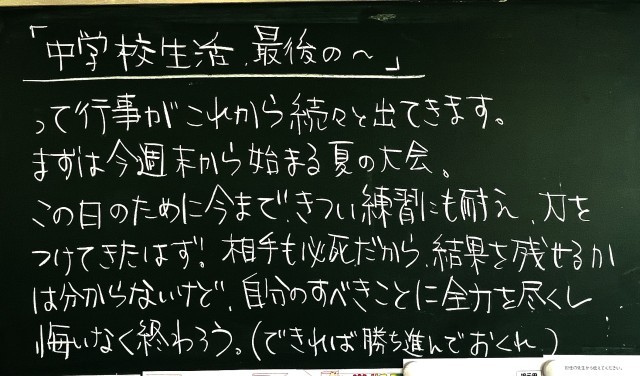 「中学校生活、最後の〜」
って行事がこれから続々と出てきます。
まずは今週末から始まる夏の大会。
この日のために今まで、きつい練習にも耐え、力を
つけてきたはず。相手も必死だから、結果を残せるか
は分からないけど、自分のすべきことに全力を尽くし
悔いなく終わろう。(できれば勝ち進んでおくれ)